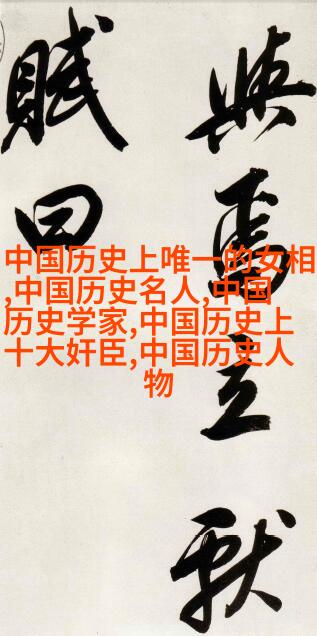 立
賦曰
中国历史上唯一的女相
,中国历史名人,中国
历史学家,中国历史上
十大奸臣,中国历史人
物